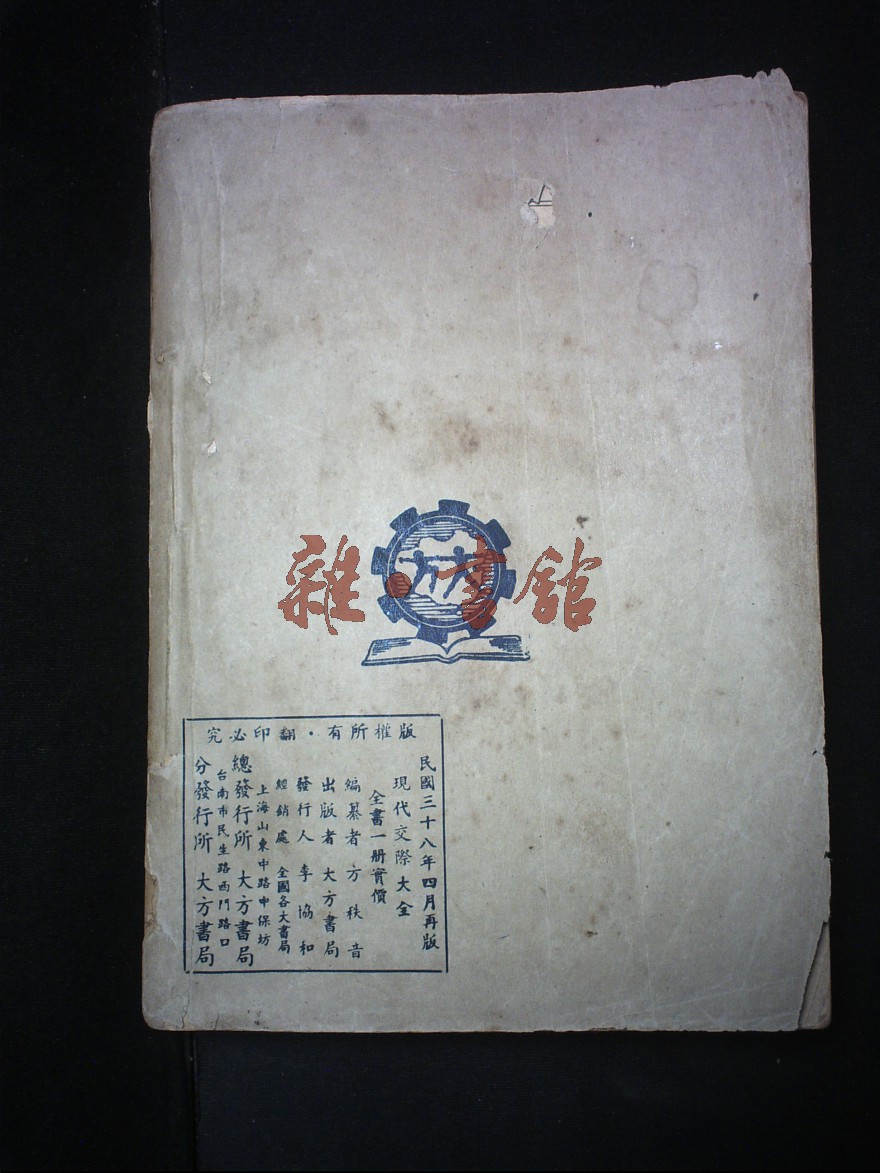 雜·書館
版權所有·翻印必究
民國三十八年四月再版
現代交際大全
全書一册實價
編纂者 方秩音
出版者 大方書局
發行人 李協和
經銷處 全國各大書局
上海山東中路中保坊
總發行所 大方書局
台南市民生路西門路口
分發行所 大方書局